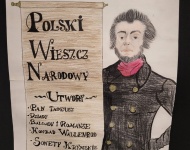 Polski
Wieszcz
Narodowy
~Utwory~
- "Pan Tadeusz"
- "Dziady"
- "Ballady i Romanse"
- "Konrad Wallenrod"
- "Sonety Krymskie"